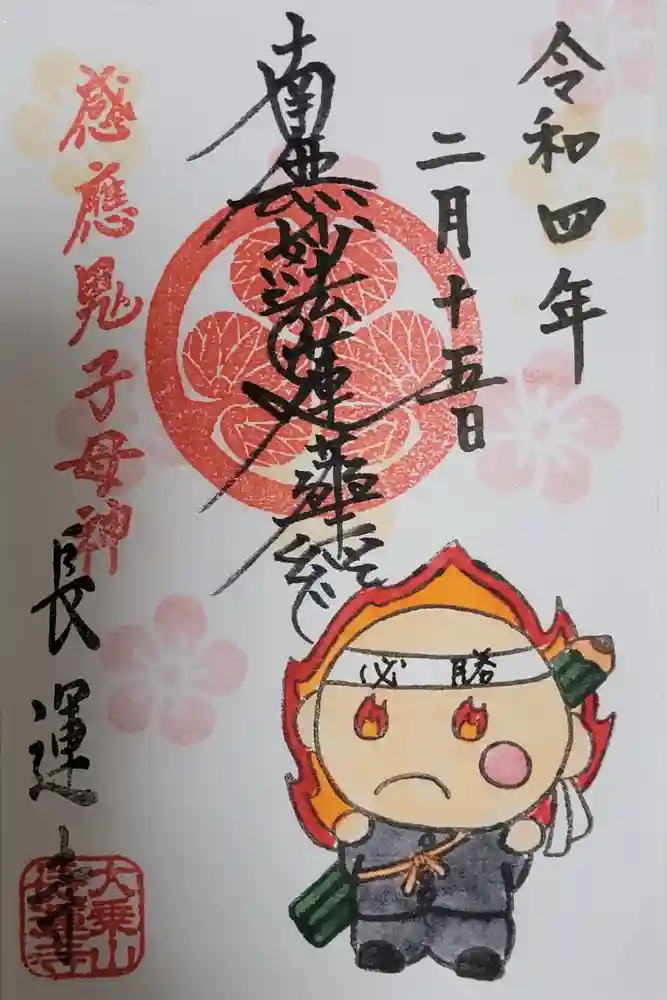 令和四年
二月十五日
南無妙法蓮華経
感應鬼子母神
長運寺
大乗山
長運寺
必勝